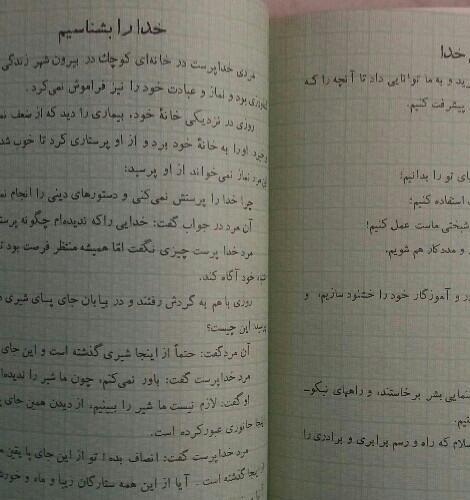 خدا را بشناسیم
مردی خداپرست در خانه‌ای کوچك در بیرون شهر زندگی
بود و نماز و عبادت خود را نیز فراموش نمی‌کرد.
روزی در نزدیکی خانهٔ خود، بیماری را دید که از ضعف
اورا به خانهٔ خود برد و از او پرستاری کرد تا خوب
مرد نماز نمی‌خواند از او پرسید:
چرا خدا را پرستش نمی‌کنی و دستورهای دینی را انجام
آن مرد در جواب گفت: خدایی راکه ندیده‌ام چگونه
مرد خدا پرست چیزی نگفت امّا همیشه منتظر فرصت بود
خود آگاه کند.
روزی با هم به گردش رفتند و در بیابان جای پسای شیری
پرسید این چیست؟
آن مردگفت: حتماً از اینجا شیری گذشته است و این جای
مرد خداپرست گفت: باور نمی‌کنم، چون ما شیر را
اوگفت: لازم نیست ما شیر را ببینیم، از دیدن همین جای
جانوری عبور کرده است.
مرد خداپرست گفت: انصاف بده! تو از این جای پا یقین
گذشته است. آیا از این همه ستارگان زیبا و ماه و
خدا
و به ما توانایی داد تا آنچه را که
پیشرفت کنیم.
تو را بدانیم؛
استفاده کنیم؛
ماست عمل کنیم؛
و مددکار هم شویم.
و آموزگار خود را خشنود سازیم، و
بشر برخاستند، و راههای نیکو-
که راه و رسم برابری و برادری را